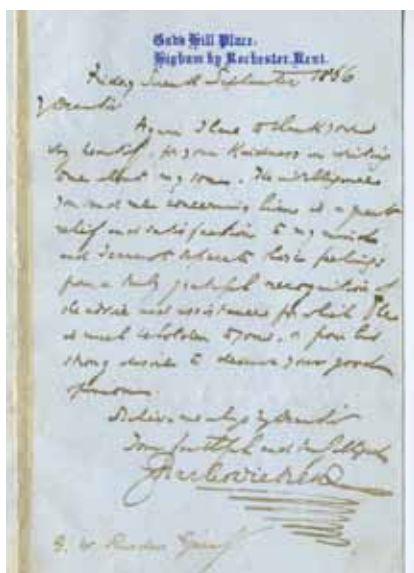 Gad's Hill Place,
Higham by Rochester, Kent.
Friday Seventh September 1866
My Dear Sir
Again I have to thank you
very heartily, for your kindness in writing
to me about my son. The intelligence
you send me concerning him is a great
relief and satisfaction to my mind
and I cannot separate those feelings
from a truly grateful recognition of
the advice and assistance for which he
is much beholden to you, or from his
strong desire to deserve your good
opinion.
Believe me always My Dear Sir
Your faithful and
Charles Dickens
G. W. Rusden